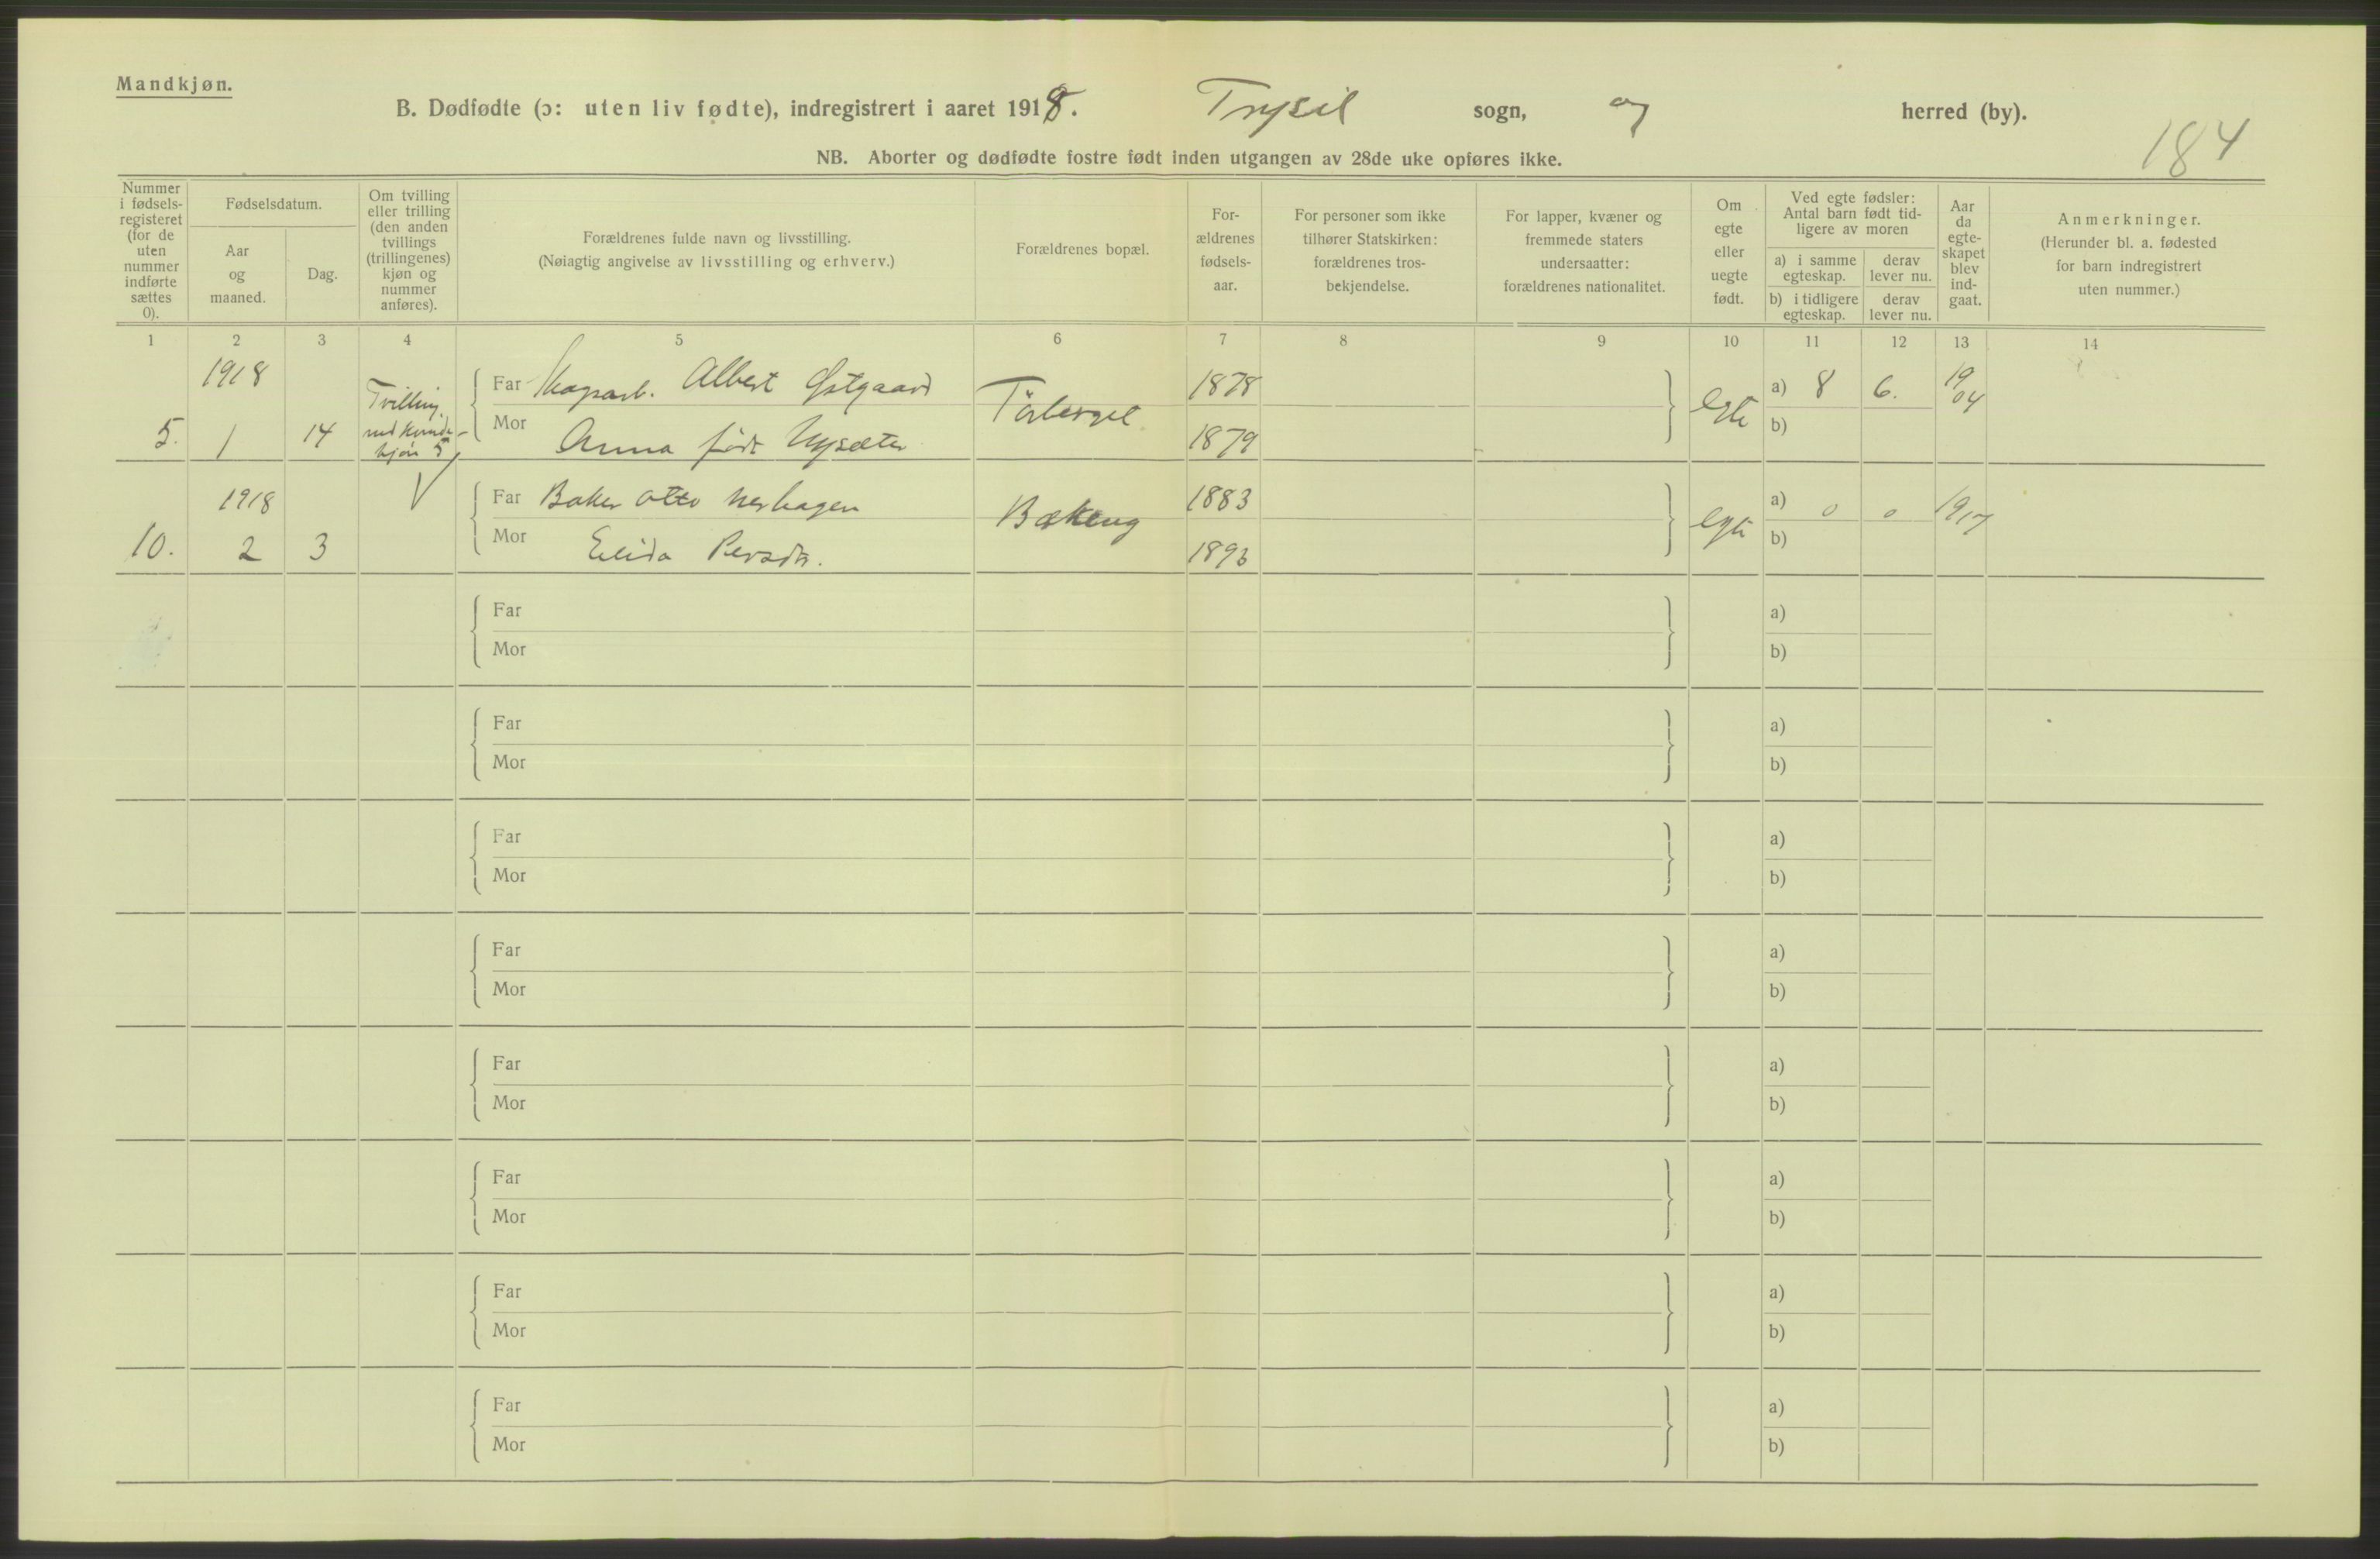 Mandkjøn.
B. Dødfødte (ɔ: uten liv fødte), indregistrert i aaret 1918. Trysil sogn, og herred (by).
184
NB. Aborter og dødfødte fostre født inden utgangen av 28de uke opføres ikke.
Nummer i fødsels-registeret (for de uten nummer indførte sættes 0).
Fødselsdatum.
Aar og maaned.
Dag.
Om tvilling eller trilling (den anden tvillings (trillingenes) kjøn og nummer anføres).
Forældrenes fulde navn og livsstilling.
(Nøiagtig angivelse av livsstilling og erhverv.)
Forældrenes bopæl.
For-ældrenes fødsels-aar.
For personer som ikke tilhører Statskirken: forældrenes tros-bekjendelse.
For lapper, kvæner og fremmede staters undersaatter: forældrenes nationalitet.
Om egte eller uegte født.
Ved egte fødsler: Antal barn født tid-ligere av moren
a) i samme egteskap.
derav lever nu.
b) i tidligere egteskap.
derav lever nu.
Aar da egte-skapet blev ind-gaat.
Anmerkninger.
(Herunder bl. a. fødested for barn indregistrert uten nummer.)
1 2 3 4 5 6 7 8 9 10 11 12 13 14
1918
5. 1 14
Tvilling
med kvinde-
kjøn 5
Far Skogsarb. Albert Østgaard
Mor Anna født Nysæter
Törberget
1878
1879
egte
a) 8 6. 19
04
b)
1918
10. 2 3
Far Baker Otto Nerhagen
Mor Elida Persdtr.
Bækeng
1883
1893
egte
a) 0 0 1917
b)
Far a)
Mor b)
Far a)
Mor b)
Far a)
Mor b)
Far a)
Mor b)
Far a)
Mor b)
Far a)
Mor b)
Far a)
Mor b)
Far a)
Mor b)